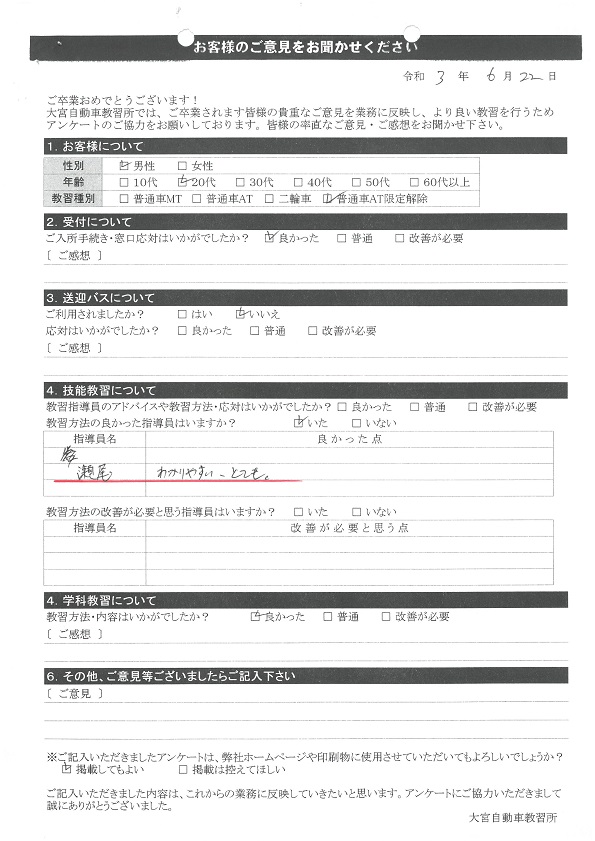 お客様のご意見をお聞かせください
令和 3 年 6 月 22 日
ご卒業おめでとうございます！
大宮自動車教習所では、ご卒業されます皆様の貴重なご意見を業務に反映し、より良い教習を行うため
アンケートのご協力をお願いしております。皆様の率直なご意見・ご感想をお聞かせ下さい。
1. お客様について
性別 ☑ 男性 □ 女性
年齢 □ 10代 ☑ 20代 □ 30代 □ 40代 □ 50代 □ 60代以上
教習種別 □ 普通車MT □ 普通車AT □ 二輪車 ☑ 普通車AT限定解除
2. 受付について
ご入所手続き・窓口応対はいかがでしたか？ ☑ 良かった □ 普通 □ 改善が必要
[ ご感想 ]
3. 送迎バスについて
ご利用されましたか？ □ はい ☑ いいえ
応対はいかがでしたか？ □ 良かった □ 普通 □ 改善が必要
[ ご感想 ]
4. 技能教習について
教習指導員のアドバイスや教習方法・応対はいかがでしたか？ □ 良かった □ 普通 □ 改善が必要
教習方法の良かった指導員はいますか？ ☑ いた □ いない
指導員名 良かった点
瀬尾 わかりやすい、とても。
教習方法の改善が必要と思う指導員はいますか？ □ いた □ いない
指導員名 改善が必要と思う点
4. 学科教習について
教習方法・内容はいかがでしたか？ ☑ 良かった □ 普通 □ 改善が必要
[ ご感想 ]
6. その他、ご意見等ございましたらご記入下さい
[ ご意見 ]
※ご記入いただきましたアンケートは、弊社ホームページや印刷物に使用させていただいてもよろしいでしょうか？
☑ 掲載してもよい □ 掲載は控えてほしい
ご記入いただきました内容は、これからの業務に反映していきたいと思います。アンケートにご協力いただきまして
誠にありがとうございました。
大宮自動車教習所